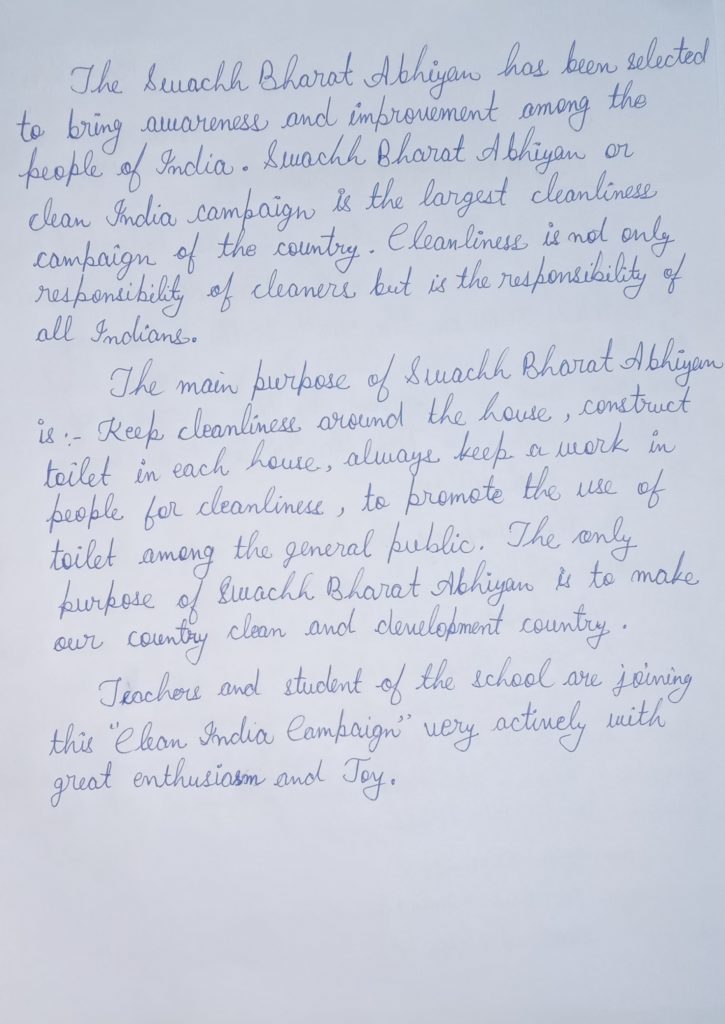 The Swachh Bharat Abhiyan has been selected
to bring awareness and improvement among the
people of India. Swachh Bharat Abhiyan or
clean India campaign is the largest cleanliness
campaign of the country. Cleanliness is not only
responsibility of cleaners but is the responsibility of
all Indians.
The main purpose of Swachh Bharat Abhiyan
is :- Keep cleanliness around the house, construct
toilet in each house, always keep a work in
people for cleanliness, to promote the use of
toilet among the general public. The only
purpose of Swachh Bharat Abhiyan is to make
our country clean and development country.
Teachers and student of the school are joining
this "Clean India Campaign" very actively with
great enthusiasm and Joy.